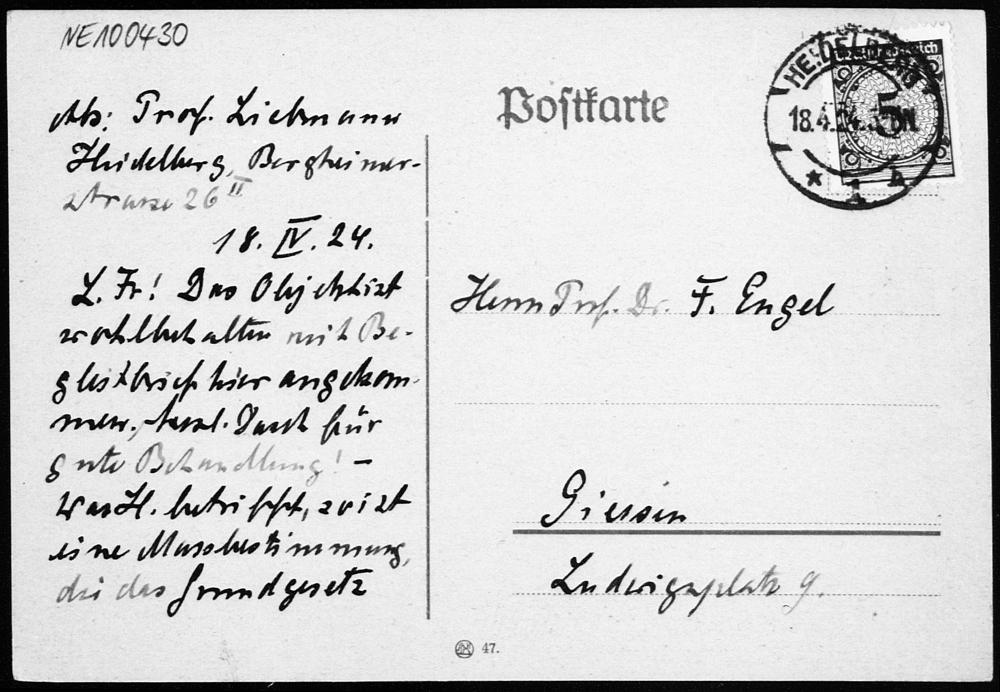 NE100430
Abs: Prof. Liebmann
Heidelberg, Bergheimer-
strasse 26 II
18. IV. 24.
L. Fr! Das Objekt ist
wohlbehalten mit Be-
gleitbrief hier angekom-
men. Dank für
gute Behandlung! —
Was H. betrifft, so ist
eine Massbestimmung,
die das Grundgesetz
Postkarte
HEIDELBERG
18.4.24.
* 1 b
Deutsches Reich
5
Herrn Prof. Dr. F. Engel
Giessen
Ludwigsplatz 9.
47.